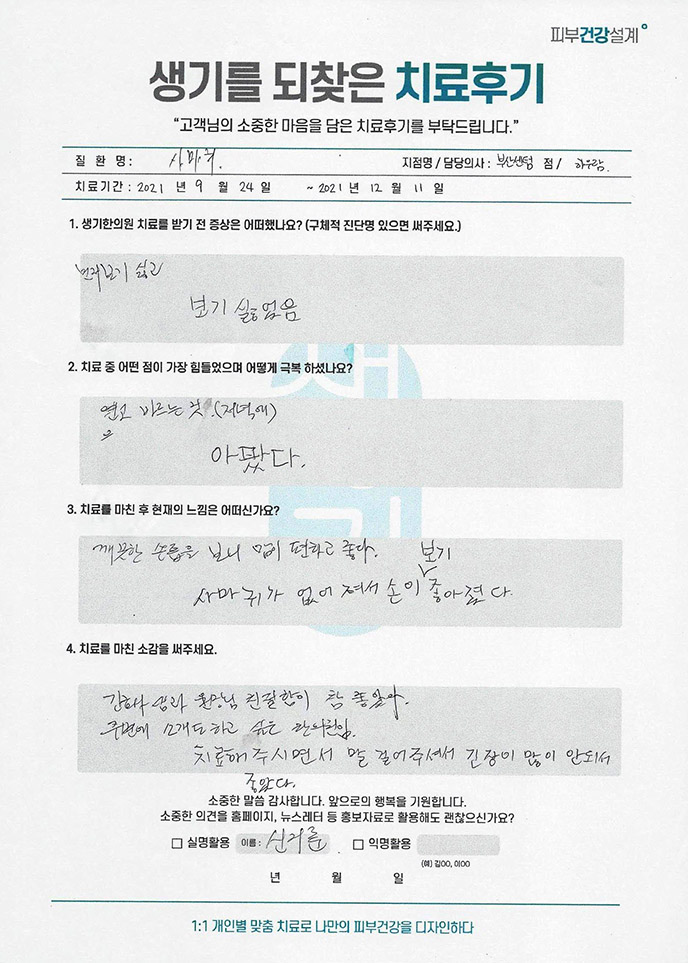 피부건강설계
생기를 되찾은 치료후기
“고객님의 소중한 마음을 담은 치료후기를 부탁드립니다.”
질 환 명 : 사마귀. 지점명 / 담당의사 : 부산센텀 점 / 하우람
치료기간 : 2021 년 9 월 24 일 ~ 2021 년 12 월 11 일
1. 생기한의원 치료를 받기 전 증상은 어떠했나요? (구체적 진단명 있으면 써주세요.)
보기 싫고
보기 싫었음
2. 치료 중 어떤 점이 가장 힘들었으며 어떻게 극복 하셨나요?
연고 바르는 것. (저녁에)
아팠다.
3. 치료를 마친 후 현재의 느낌은 어떠신가요?
깨끗한 손톱을 보니 맘이 편하고 좋다.
사마귀가 없어져서 손이 보기 좋아졌다.
4. 치료를 마친 소감을 써주세요.
간호사 샘과 원장님 친절함이 참 좋았다.
주변에 소개도 하고 싶은 한의원임.
치료해 주시면서 말 걸어주셔서 긴장이 많이 안되서
좋았다.
소중한 말씀 감사합니다. 앞으로의 행복을 기원합니다.
소중한 의견을 홈페이지, 뉴스레터 등 홍보자료로 활용해도 괜찮으신가요?
□ 실명활용 이름 : □ 익명활용
(예) 김OO, 이OO
년 월 일
1:1 개인별 맞춤 치료로 나만의 피부건강을 디자인하다